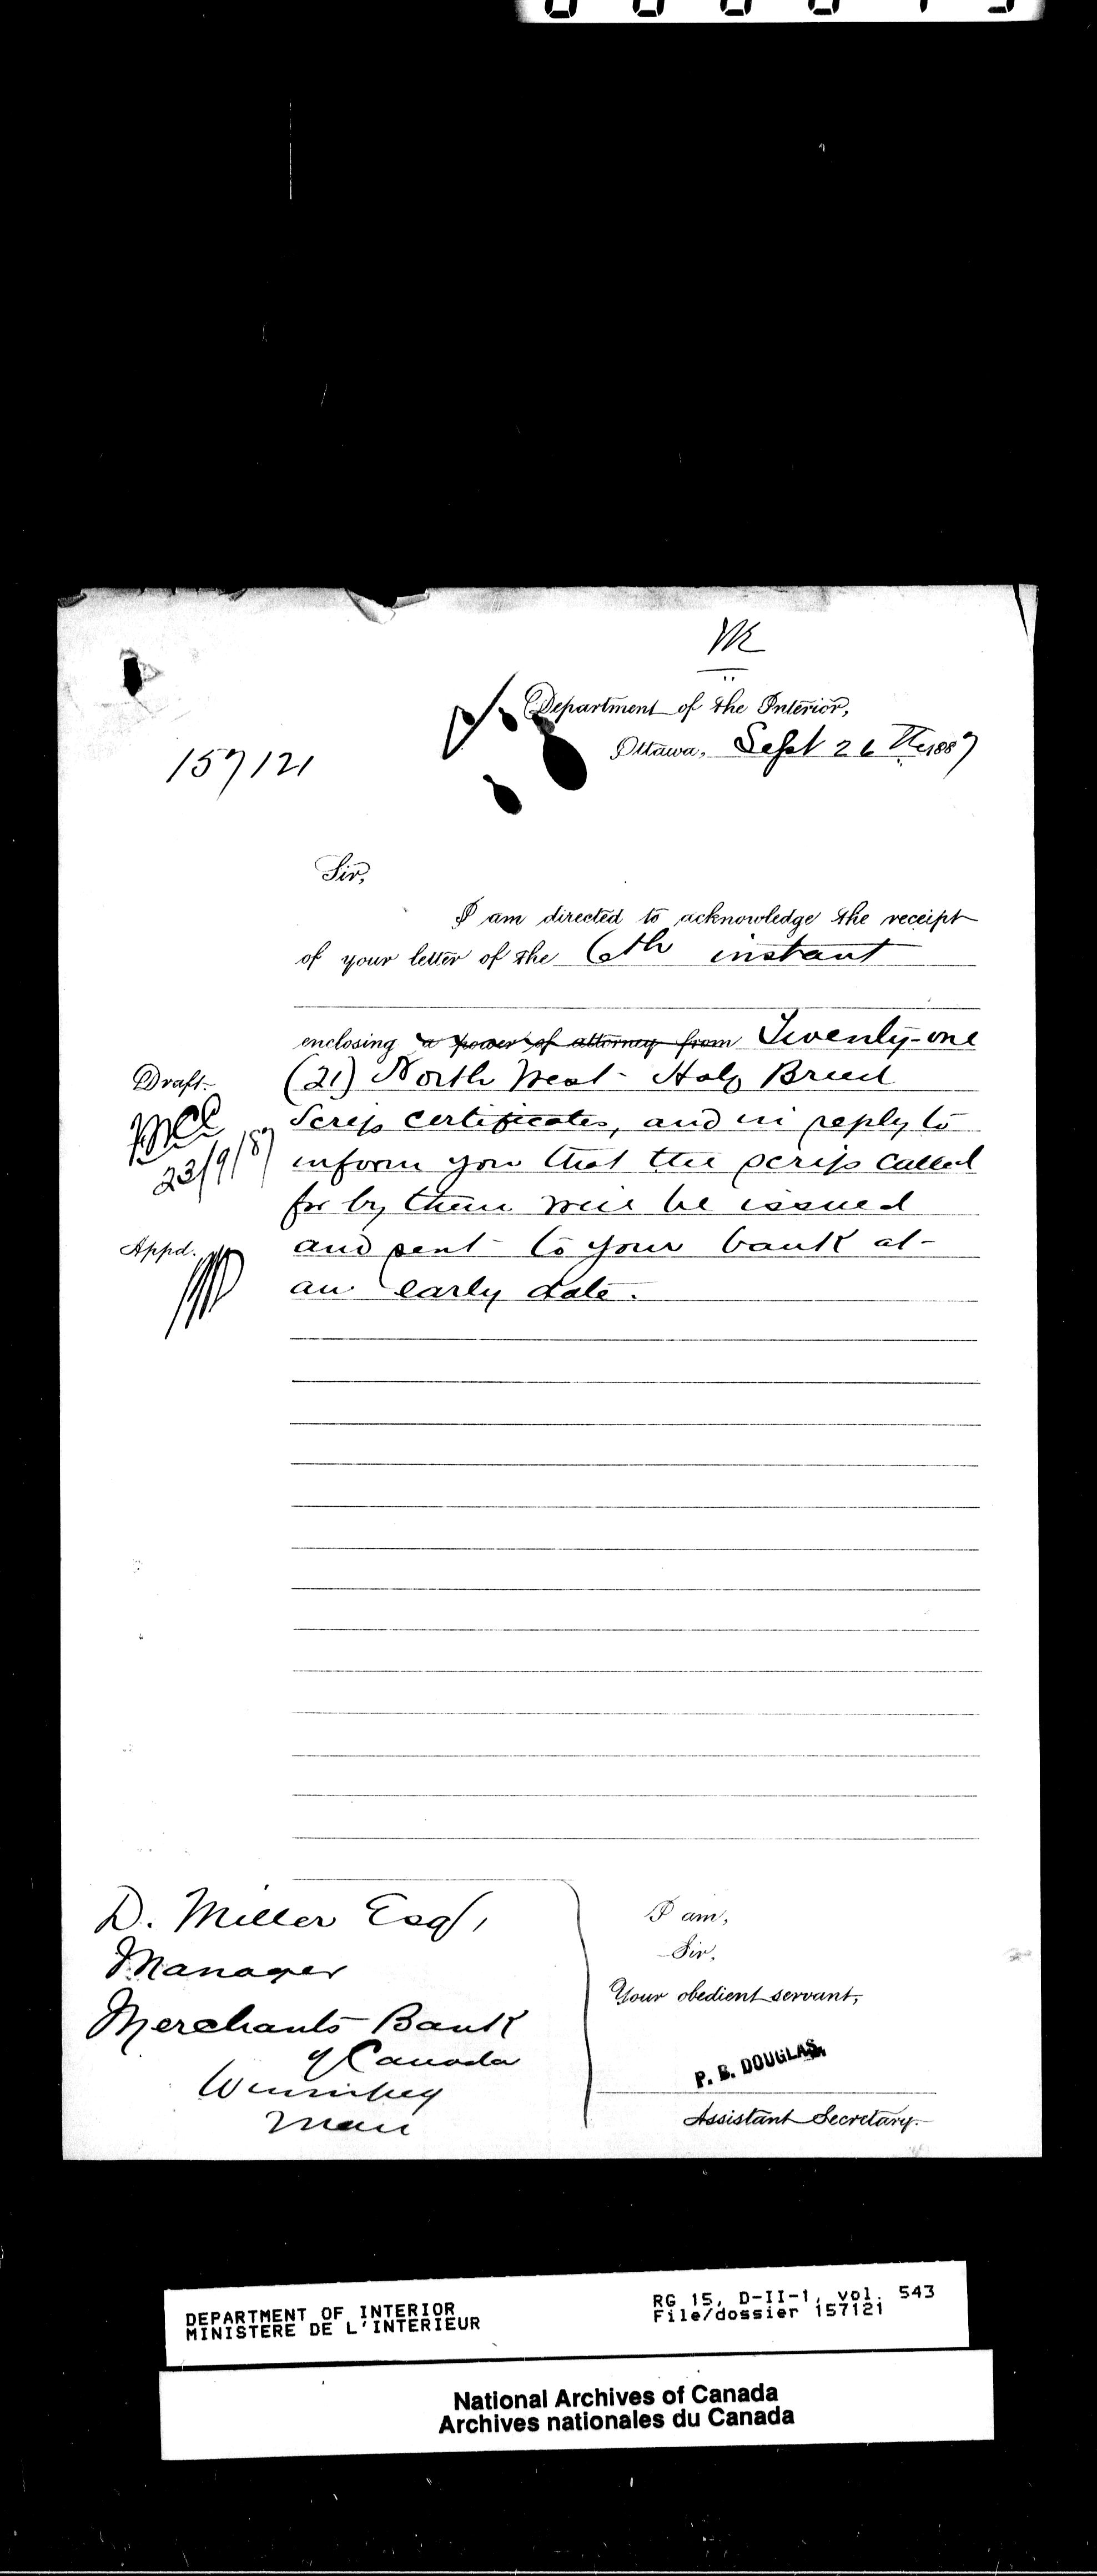 Department of the Interior,
Ottawa, Sept 26th 1887
157121
Sir,
I am directed to acknowledge the receipt
of your letter of the 6th instant
enclosing a power of attorney from Twenty-one
(21) North West Half Breed
Scrip certificates, and in reply to
inform you that the scrip called
for by them will be issued
and sent to your bank at
an early date.
Draft.
23/9/87
Appd.
D. Miller Esq,
Manager
Merchants Bank
of Canada
Winnipeg
Man
I am,
Sir,
Your obedient servant,
P. B. DOUGLAS,
Assistant Secretary.
DEPARTMENT OF INTERIOR
MINISTERE DE L'INTERIEUR
RG 15, D-II-1, vol. 543
File/dossier 157121
National Archives of Canada
Archives nationales du Canada